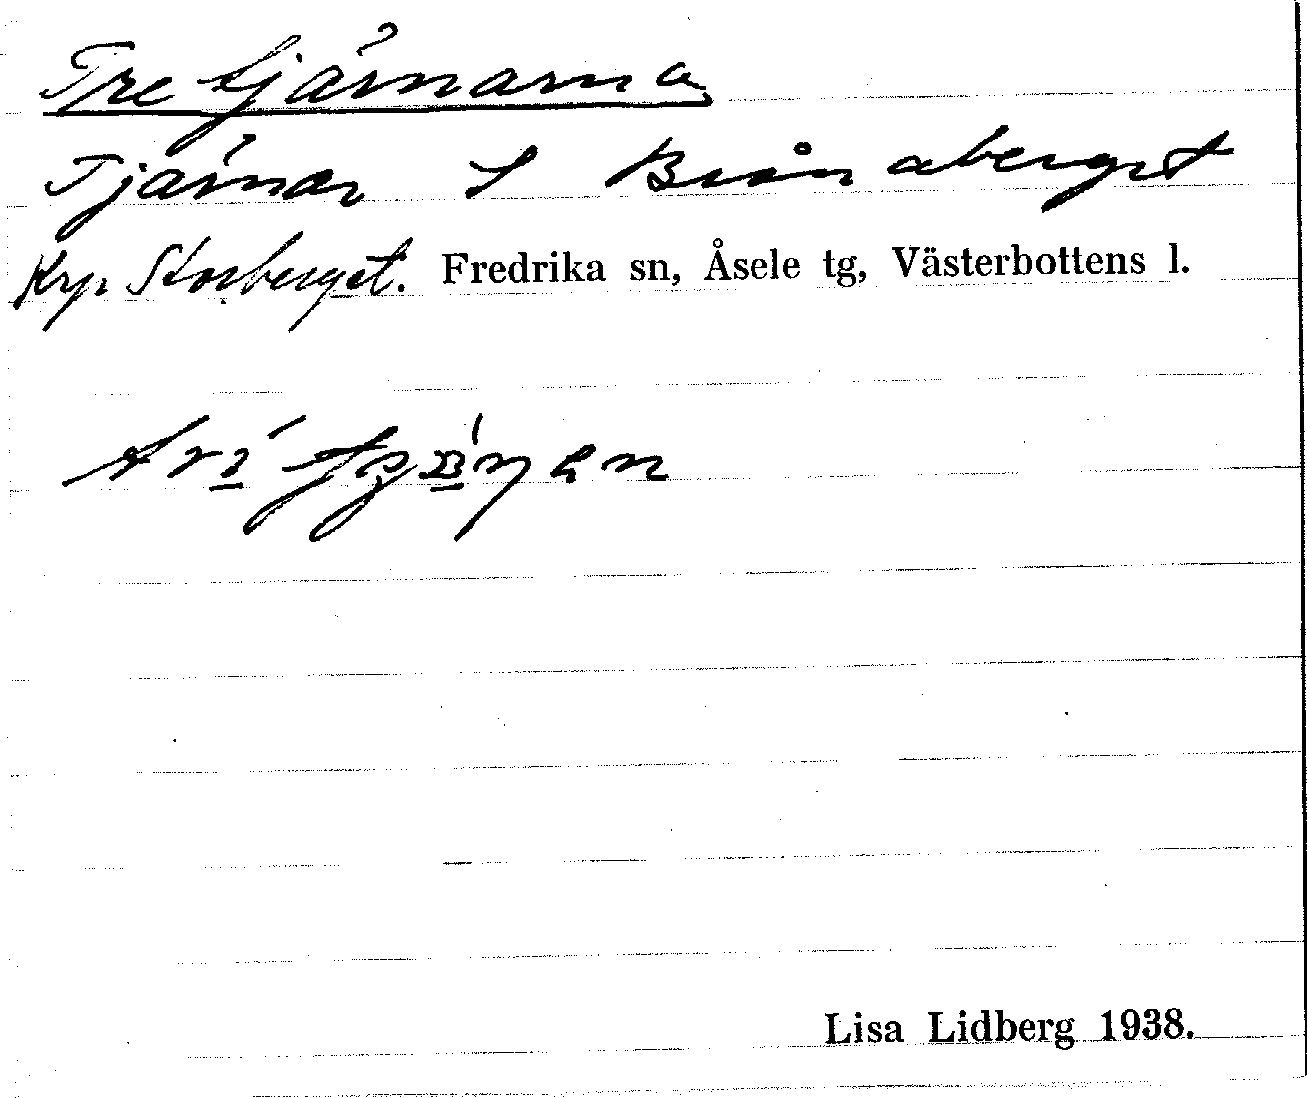 Tre tjärnarna
Tjärnar S Brånaberget
Krp. Storberget. Fredrika sn, Åsele tg, Västerbottens l.
Lisa Lidberg 1938.